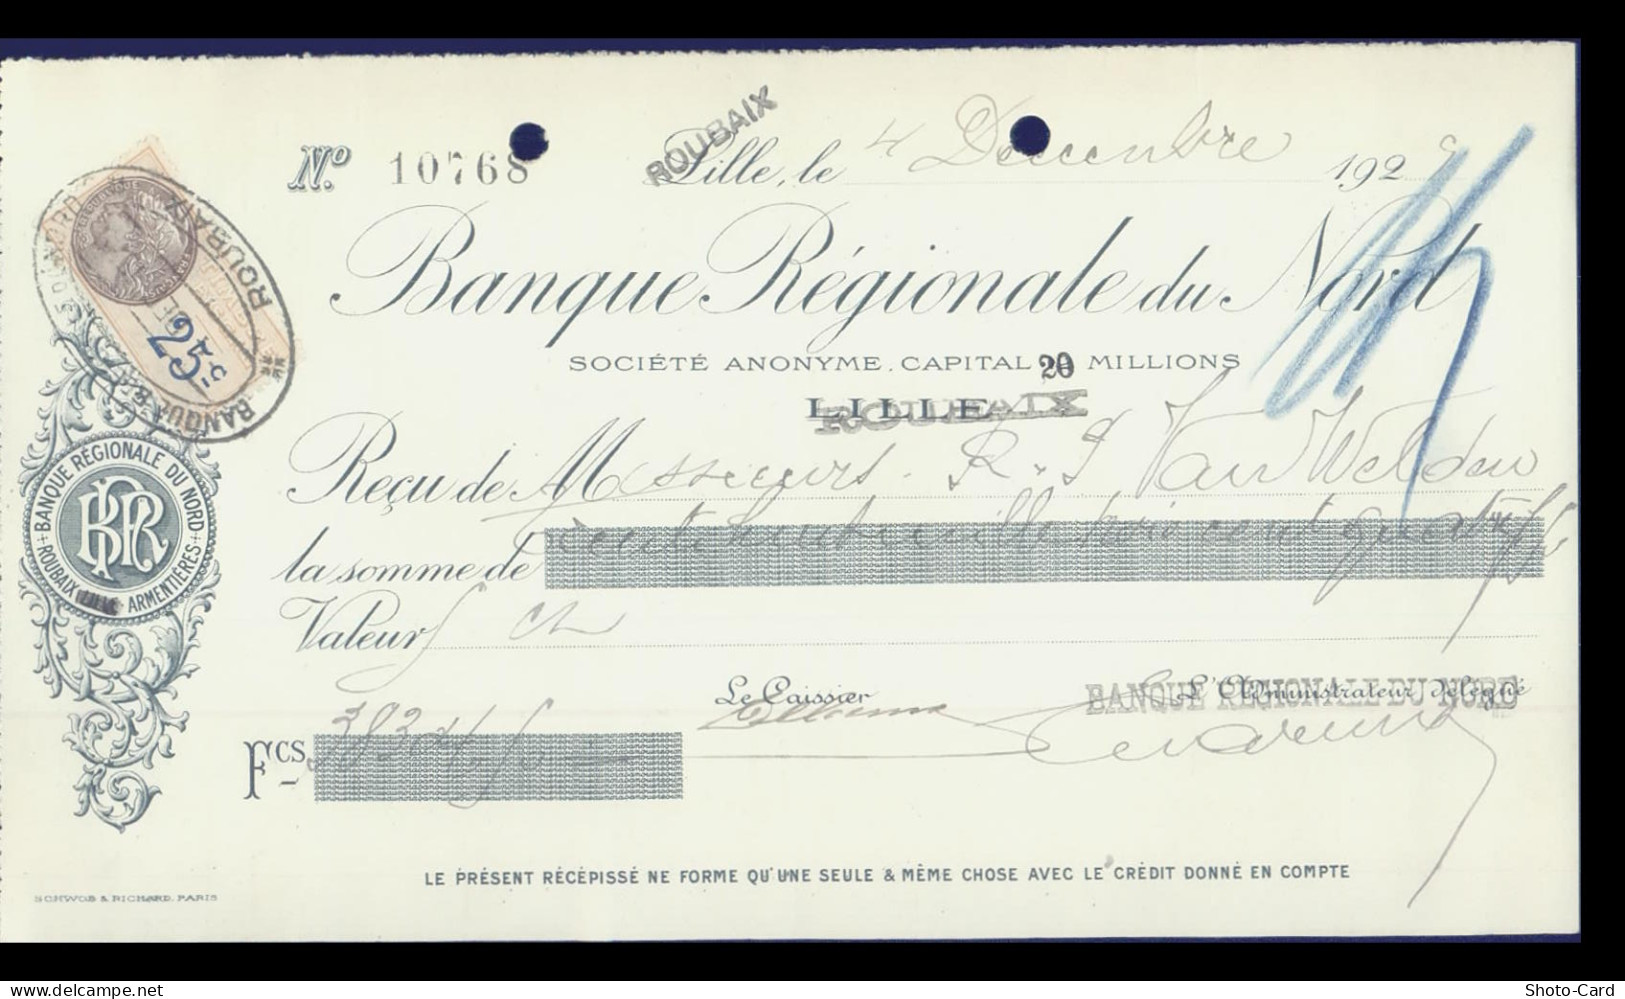 Nº 10768
ROUBAIX
Lille, le 4 Décembre 192
Banque Régionale du Nord
SOCIÉTÉ ANONYME. CAPITAL 20 MILLIONS
LILLE
ROUBAIX
Reçu de Messieurs R. J Van Welden
la somme de trente huit mille trois cent quatre
Valeur
Le Caissier
L'Administrateur Délégué
BANQUE RÉGIONALE DU NORD
Fcs
LE PRÉSENT RÉCÉPISSÉ NE FORME QU'UNE SEULE & MÊME CHOSE AVEC LE CRÉDIT DONNÉ EN COMPTE
SCHWOB & RICHARD. PARIS
25c
ROUBAIX
BANQUE
BANQUE RÉGIONALE DU NORD
BRN
ROUBAIX LILLE ARMENTIÈRES
www.delcampe.net
Shoto-Card